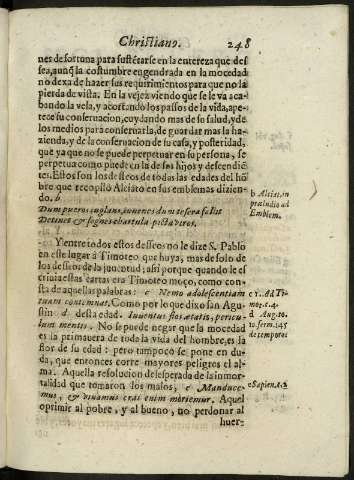 Christiano. 248
nes de fortuna para sustētarse en la entereza que des
sea, aunq̃ la costumbre engendrada en la mocedad
no dexa de hazer sus requirimientos para que no la
pierda de vista. En la vejez viendo que se le va aca-
bando la vela, y acortando los passos de la vida, ape-
tece su conseruacion, cuydando mas de su salud, y de
los medios para conseruarla, de guardar mas la ha-
zienda, y de la conseruacion de su casa, y posteridad,
que ya que no se puede perpetuar en su persona, se
perpetua como puede en la de sus hijos y descendiē-
tes. Estos son los desseos de todas las edades del hō
bre que recopilò Alciato en sus emblemas dizien-
do. b
b Alciat. in
præludio ad
Emblem.
Dum pueros iuglans, iuuenes dum tesera fallit
Detinet & segnes chartula picta viros.
Y entre todos estos desseos no le dize S. Pablo
en este lugar à Timoteo que huya, mas de solo de
los desseos de la juuentud; assi porque quando le es
criuia estas cartas era Timoteo moço, como con-
sta de aquellas palabras: c Nemo adolescentiam
tuam contemnat. Como por lo que dixo san Agu-
stin d desta edad. Iuuentus flos ætatis, pericu-
lum mentis. No se puede negar que la mocedad
es la primauera de toda la vida del hombre, es la
flor de su edad: pero tampoco se pone en du-
da, que entonces corre mayores peligros el al-
ma. Aquella resolucion desesperada de la inmor-
talidad que tomaron los malos, e Manduce-
mus, & viuamus cras enim moriemur. Aquel
oprimir al pobre, y al bueno, no perdonar al
huer-
c 1. Ad Ti-
mot. c. 4.
d Aug. to.
10. serm. 245
de tempore.
e Sapien. c. 2